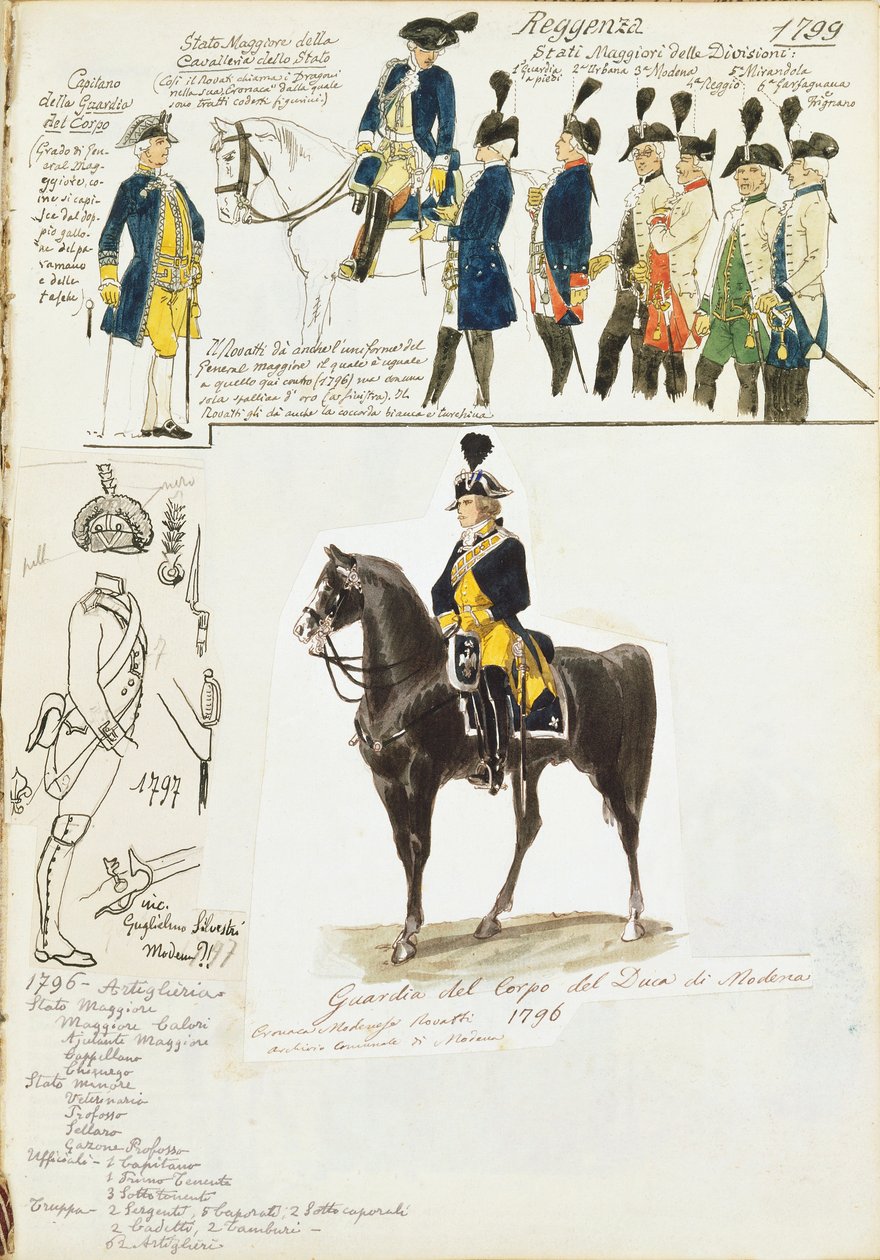 Reggenza
1799
Stato Maggiore della
Cavalleria dello Stato
(Così il Rovati chiama i Dragoni
nella sua "Cronaca" dalla quale
sono tratti codesti figurini.)
Stati Maggiori delle Divisioni:
1ª Guardia a piedi
2ª Urbana
3ª Modena
4ª Reggio
5ª Mirandola
6ª Garfagnana e Frignano
Capitano
della Guardia
del Corpo
(Grado di Gen-
eral Mag-
ggiore, co-
me si capi-
sce dal dop-
pio gallo-
ne del pa-
ramano
e delle
tasche)
Il Rovatti dà anche l'uniforme del
General maggiore il quale è uguale
a quello qui contro (1796) ma con una
sola spallina d'oro (a sinistra). Il
Rovatti gli dà anche la coccarda bianca e turchina
nero
pelle
7
1797
inc.
Guglielmo Silvestri
Modena?!!
1797
Guardia del Corpo del Duca di Modena
1796
Cronaca Modenese Rovatti
Archivio Comunale di Modena
1796 - Artiglieria
Stato Maggiore
Maggiore Calori
Ajutante Maggiore
Cappellano
Chirurgo
Stato Minore
Veterinario
Profosso
Sellaro
Garzone Profosso
Ufficiali - 1 Capitano
1 Primo Tenente
3 Sottotenenti
Truppa - 2 Sergenti, 5 Caporali, 2 Sottocaporali
2 Cadetti, 2 Tamburi -
62 Artiglieri